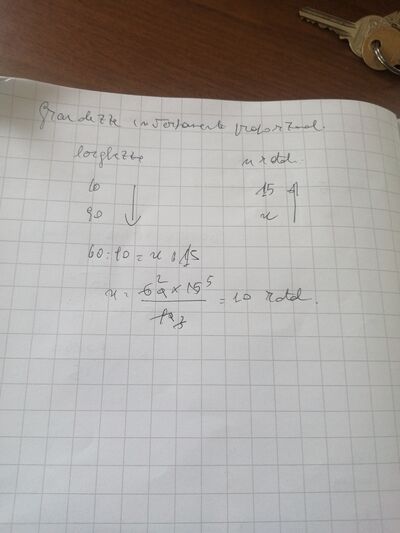 Grandezze inversamente proporzional.
larghezza n rotol.
60 15
90 x
60 : 90 = x : 15
x = 60² × 15⁵ / 90 3 = 10 rotol.